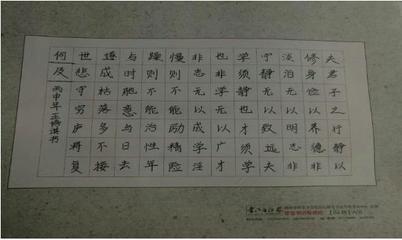 夫君子之行静以
修身俭以养德非
淡泊无以明志非
宁静无以致远夫
学须静也才须学
也非学无以广才
非志无以成学淫
慢则不能励精险
躁则不能治性年
与时驰意与日去
遂成枯落多不接
世悲守穷庐将复
何及
丙申年王书